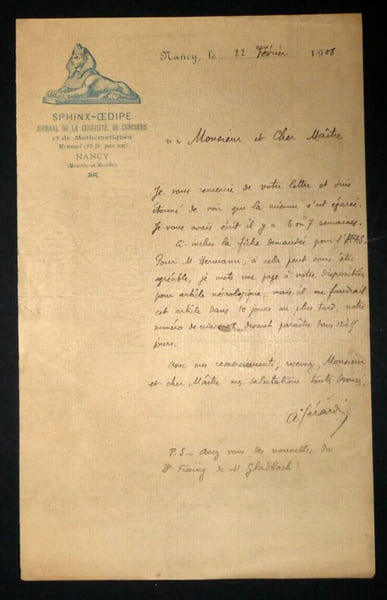 SPHINX-ŒDIPE
JOURNAL DE LA CURIOSITÉ, DE CONCOURS
et de Mathématiques
Mensuel (10 fr. par an)
NANCY
(Meurthe-et-Moselle)
Nancy, le 22 Février 1908
Monsieur et Cher Maître
Je vous remercie de votre lettre et suis
étonné de voir que la mienne s'est égarée.
Je vous avais écrit il y a 6 ou 7 semaines.
Ci-inclus la fiche demandée pour l'AFAS.
Pour M Hermann, si cela peut vous être
agréable, je mets une page à votre disposition
pour article nécrologique, mais il me faudrait
cet article dans 10 jours au plus tard, notre
numéro de mars devant paraître dans 12 à 15
jours.
Avec mes remerciements, recevez, Monsieur
et cher Maître mes salutations toute dévouées.
A. Gérardin
P.S. Avez vous des nouvelles du
Dr de M Gladbach?